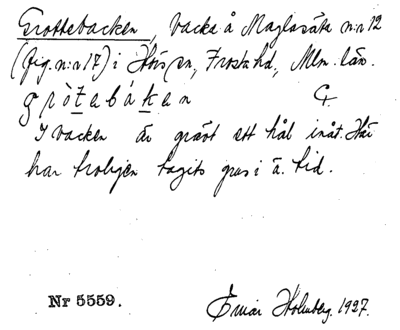 Grottebacken, backe å Maglasäte n:r 12
(fig. n:r 17) i Hörs sn, Frosta hd, Mlm. län.
gròtebáken G.
I backen är grävt ett hål inåt. Här
har troligen tagits grus i ä. tid.
Nr 5559.
Einar Holmberg. 1927.